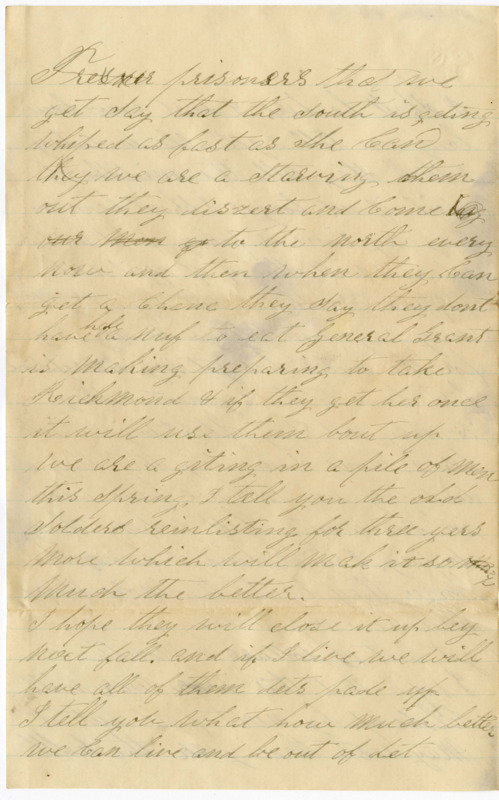 prisoners that we
get say that the south is geting
whiped as fast as she Can
they we are a starving them
out they diszert and Come
our men to the north every
now and then when they Can
get a Chane they say they dont
have half a nuf to eat General Grant
is making preparing to take
Richmond & if they get her once
it will use them bout up
we are a giting in a pile of men
this spring, I tell you the old
Solders reinlisting for three yers
more which will mak it so
much the better.
I hope they will close it up by
next fall. and if I live we will
have all of them dets pade up
I tell you what how much better
we Can live and be out of det